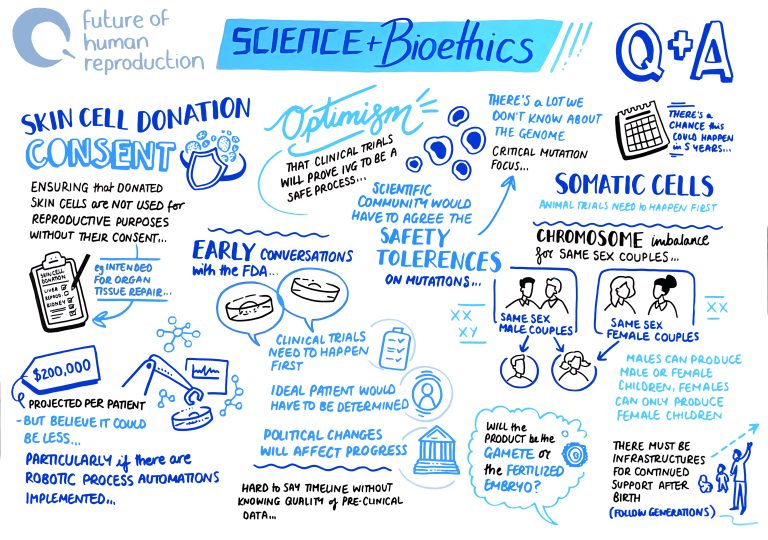 future of
human
reproduction
SCIENCE + Bioethics
Q+A
SKIN CELL DONATION
CONSENT
ENSURING that DONATED
SKIN CELLS are NOT USED for
REPRODUCTIVE PURPOSES
WITHOUT THEIR CONSENT...
SKIN CELL
DONATION
LIVER
REPROD.
KIDNEY
eg INTENDED
FOR ORGAN
TISSUE REPAIR...
$200,000
PROJECTED PER PATIENT
-BUT BELIEVE IT COULD
BE LESS...
PARTICULARLY if THERE are
ROBOTIC PROCESS AUTOMATIONS
IMPLEMENTED...
Optimism
THAT CLINICAL TRIALS
WILL PROVE IVG TO BE A
SAFE PROCESS...
SCIENTIFIC
COMMUNITY WOULD
HAVE TO AGREE THE
SAFETY
TOLERENCES
ON MUTATIONS...
THERE'S a LOT WE
DON'T KNOW ABOUT
THE GENOME
CRITICAL MUTATION
FOCUS...
EARLY CONVERSATIONS
with the FDA...
CLINICAL TRIALS
NEED TO HAPPEN
FIRST
IDEAL PATIENT WOULD
HAVE TO BE DETERMINED
POLITICAL CHANGES
WILL AFFECT PROGRESS
HARD to SAY TIMELINE WITHOUT
KNOWING QUALITY of PRE-CLINICAL
DATA...
THERE'S a
CHANCE this
COULD HAPPEN
in 5 YEARS...
SOMATIC CELLS
ANIMAL TRIALS NEED to HAPPEN FIRST
CHROMOSOME imbalance
for SAME SEX COUPLES...
XX
XY
SAME SEX
MALE COUPLES
SAME SEX
FEMALE COUPLES
XX
MALES CAN PRODUCE
MALE OR FEMALE
CHILDREN, FEMALES
CAN ONLY PRODUCE
FEMALE CHILDREN
WILL the
PRODUCT be the
GAMETE or
the FERTILIZED
EMBRYO?
THERE MUST BE
INFRASTRUCTURES
FOR CONTINUED
SUPPORT AFTER
BIRTH
(FOLLOW GENERATIONS)